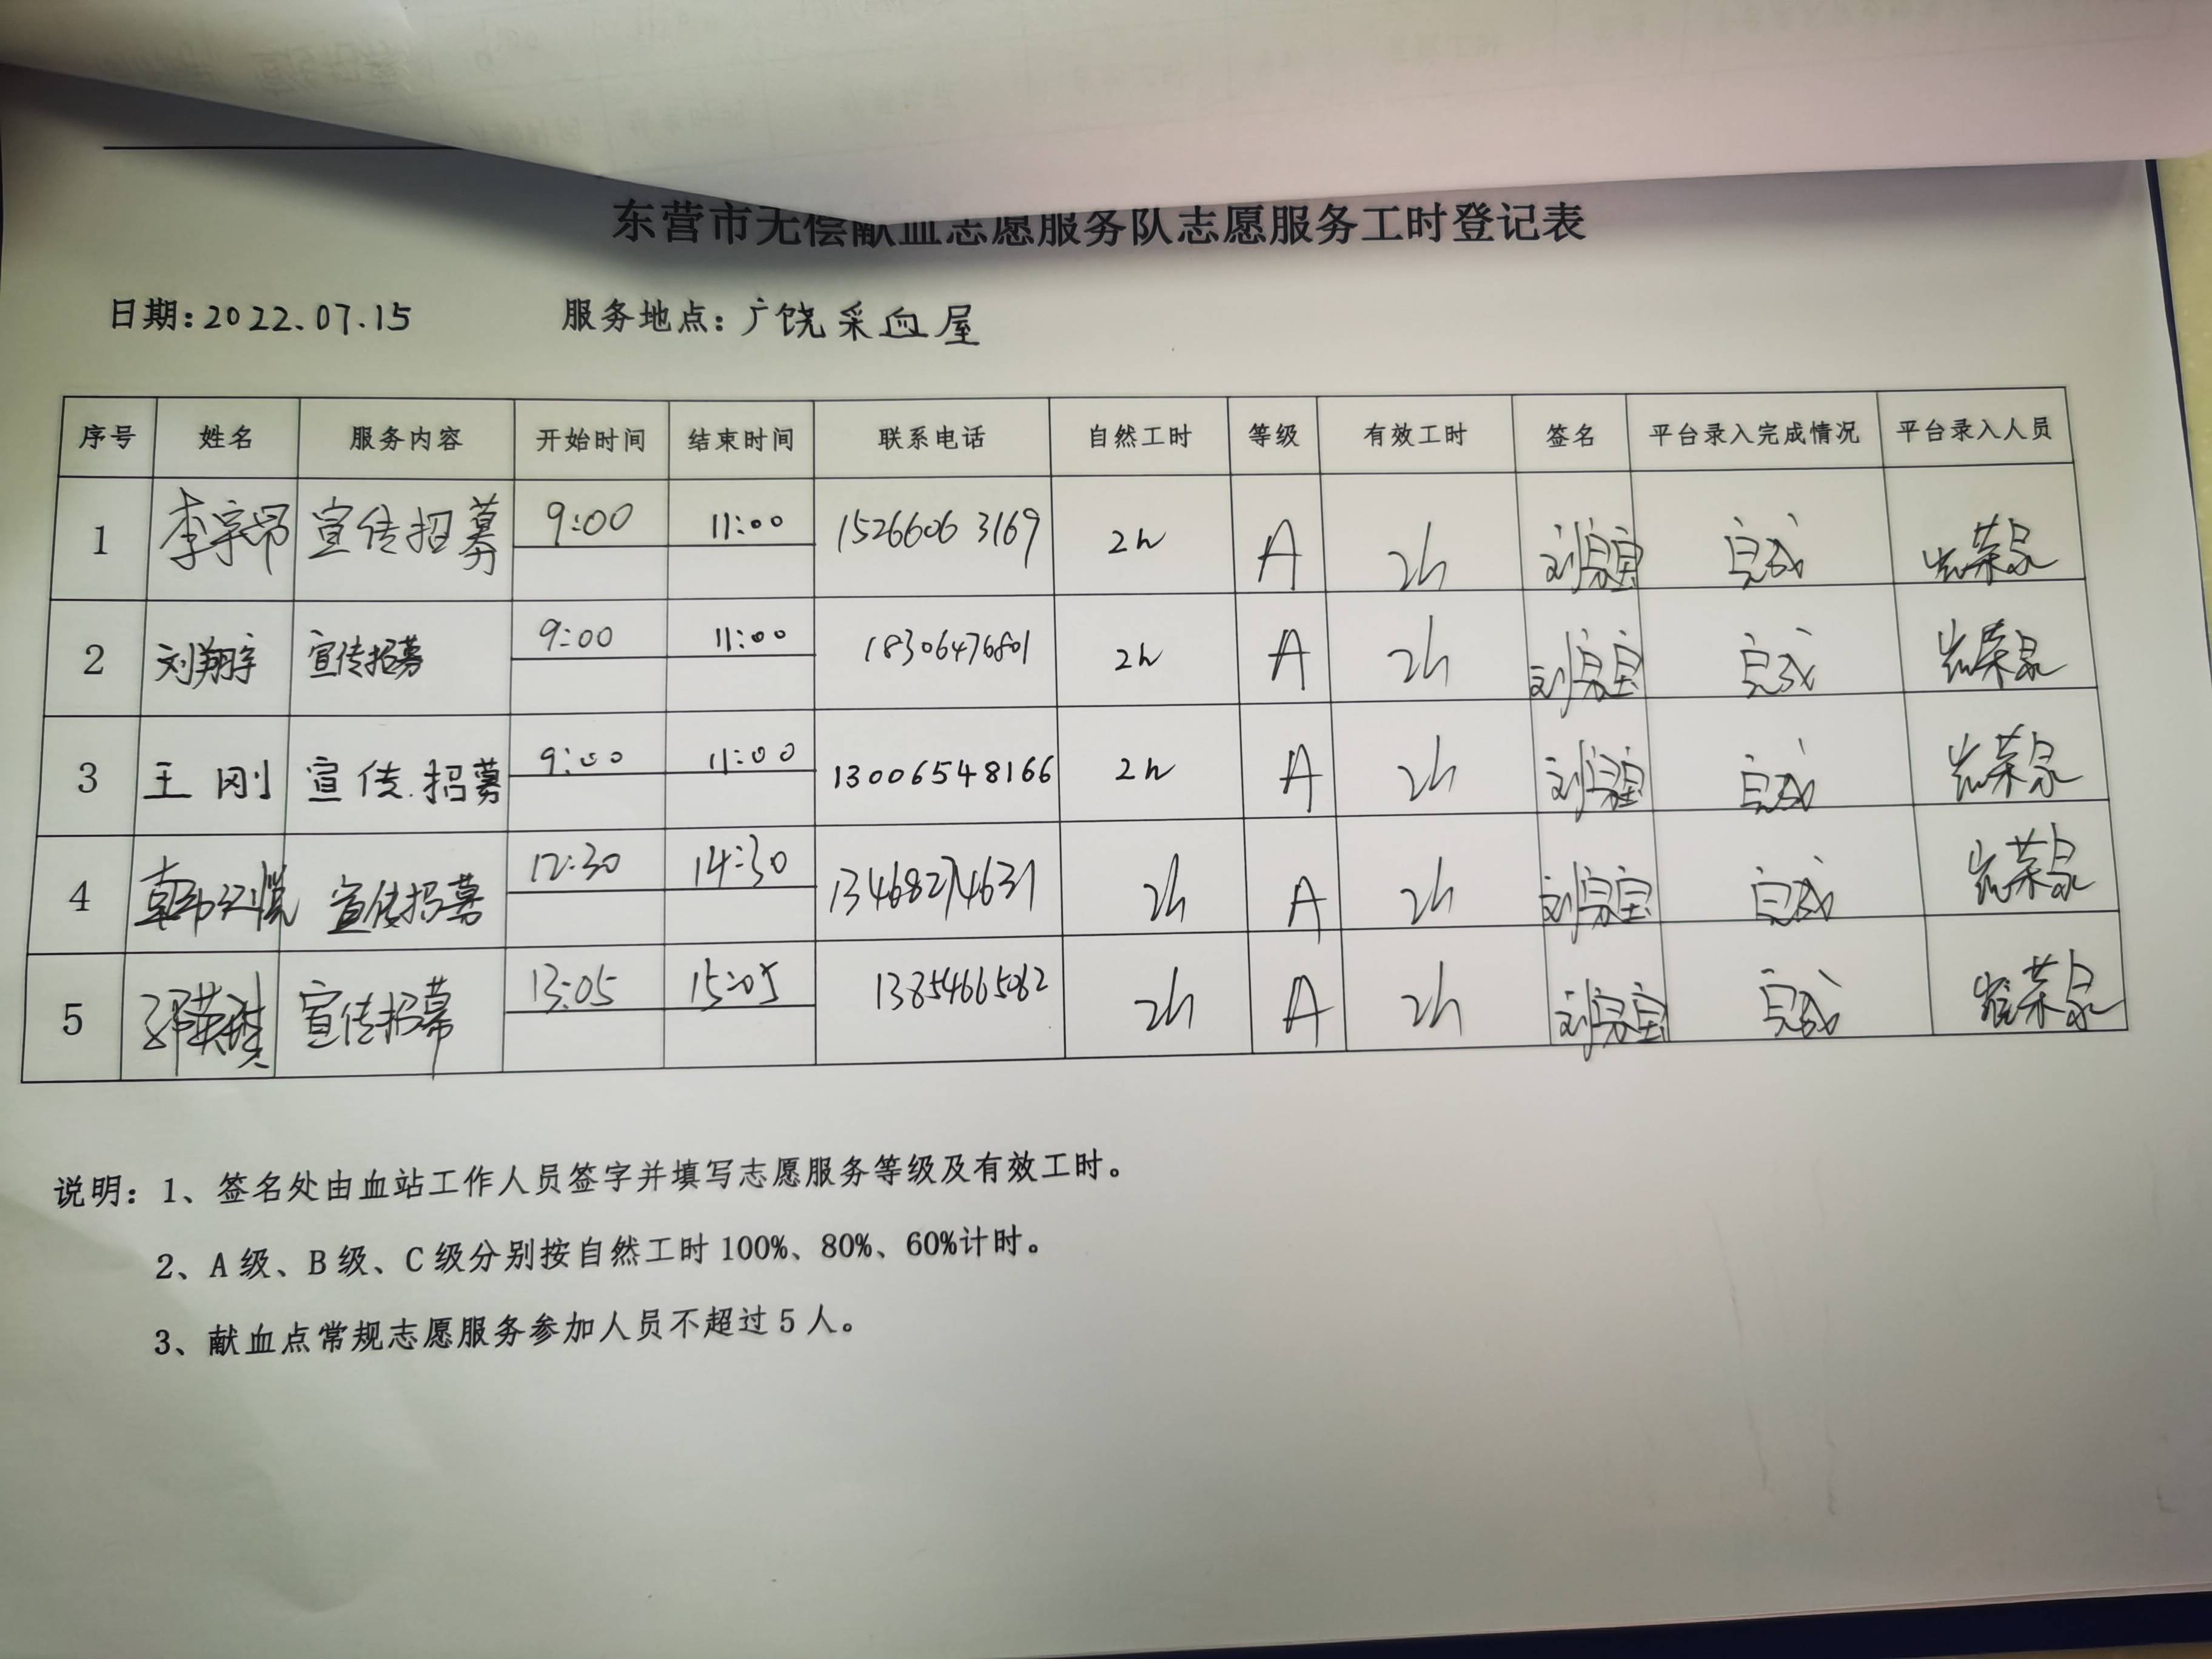 东营市无偿献血志愿服务队志愿服务工时登记表
日期:2022.07.15 服务地点:广饶采血屋
序号 姓名 服务内容 开始时间 结束时间 联系电话 自然工时 等级 有效工时 签名 平台录入完成情况 平台录入人员
1 李宗昂 宣传招募 9:00 11:00 15266063169 2h A 2h 完成
2 刘翔宇 宣传招募 9:00 11:00 18306476801 2h A 2h 完成
3 王刚 宣传招募 9:00 11:00 13006548166 2h A 2h 完成
4 宣传招募 12:30 14:30 13468274631 2h A 2h 完成
5 宣传招募 13:05 15:05 13854665082 2h A 2h 完成
说明:1、签名处由血站工作人员签字并填写志愿服务等级及有效工时。
2、A级、B级、C级分别按自然工时100%、80%、60%计时。
3、献血点常规志愿服务参加人员不超过5人。